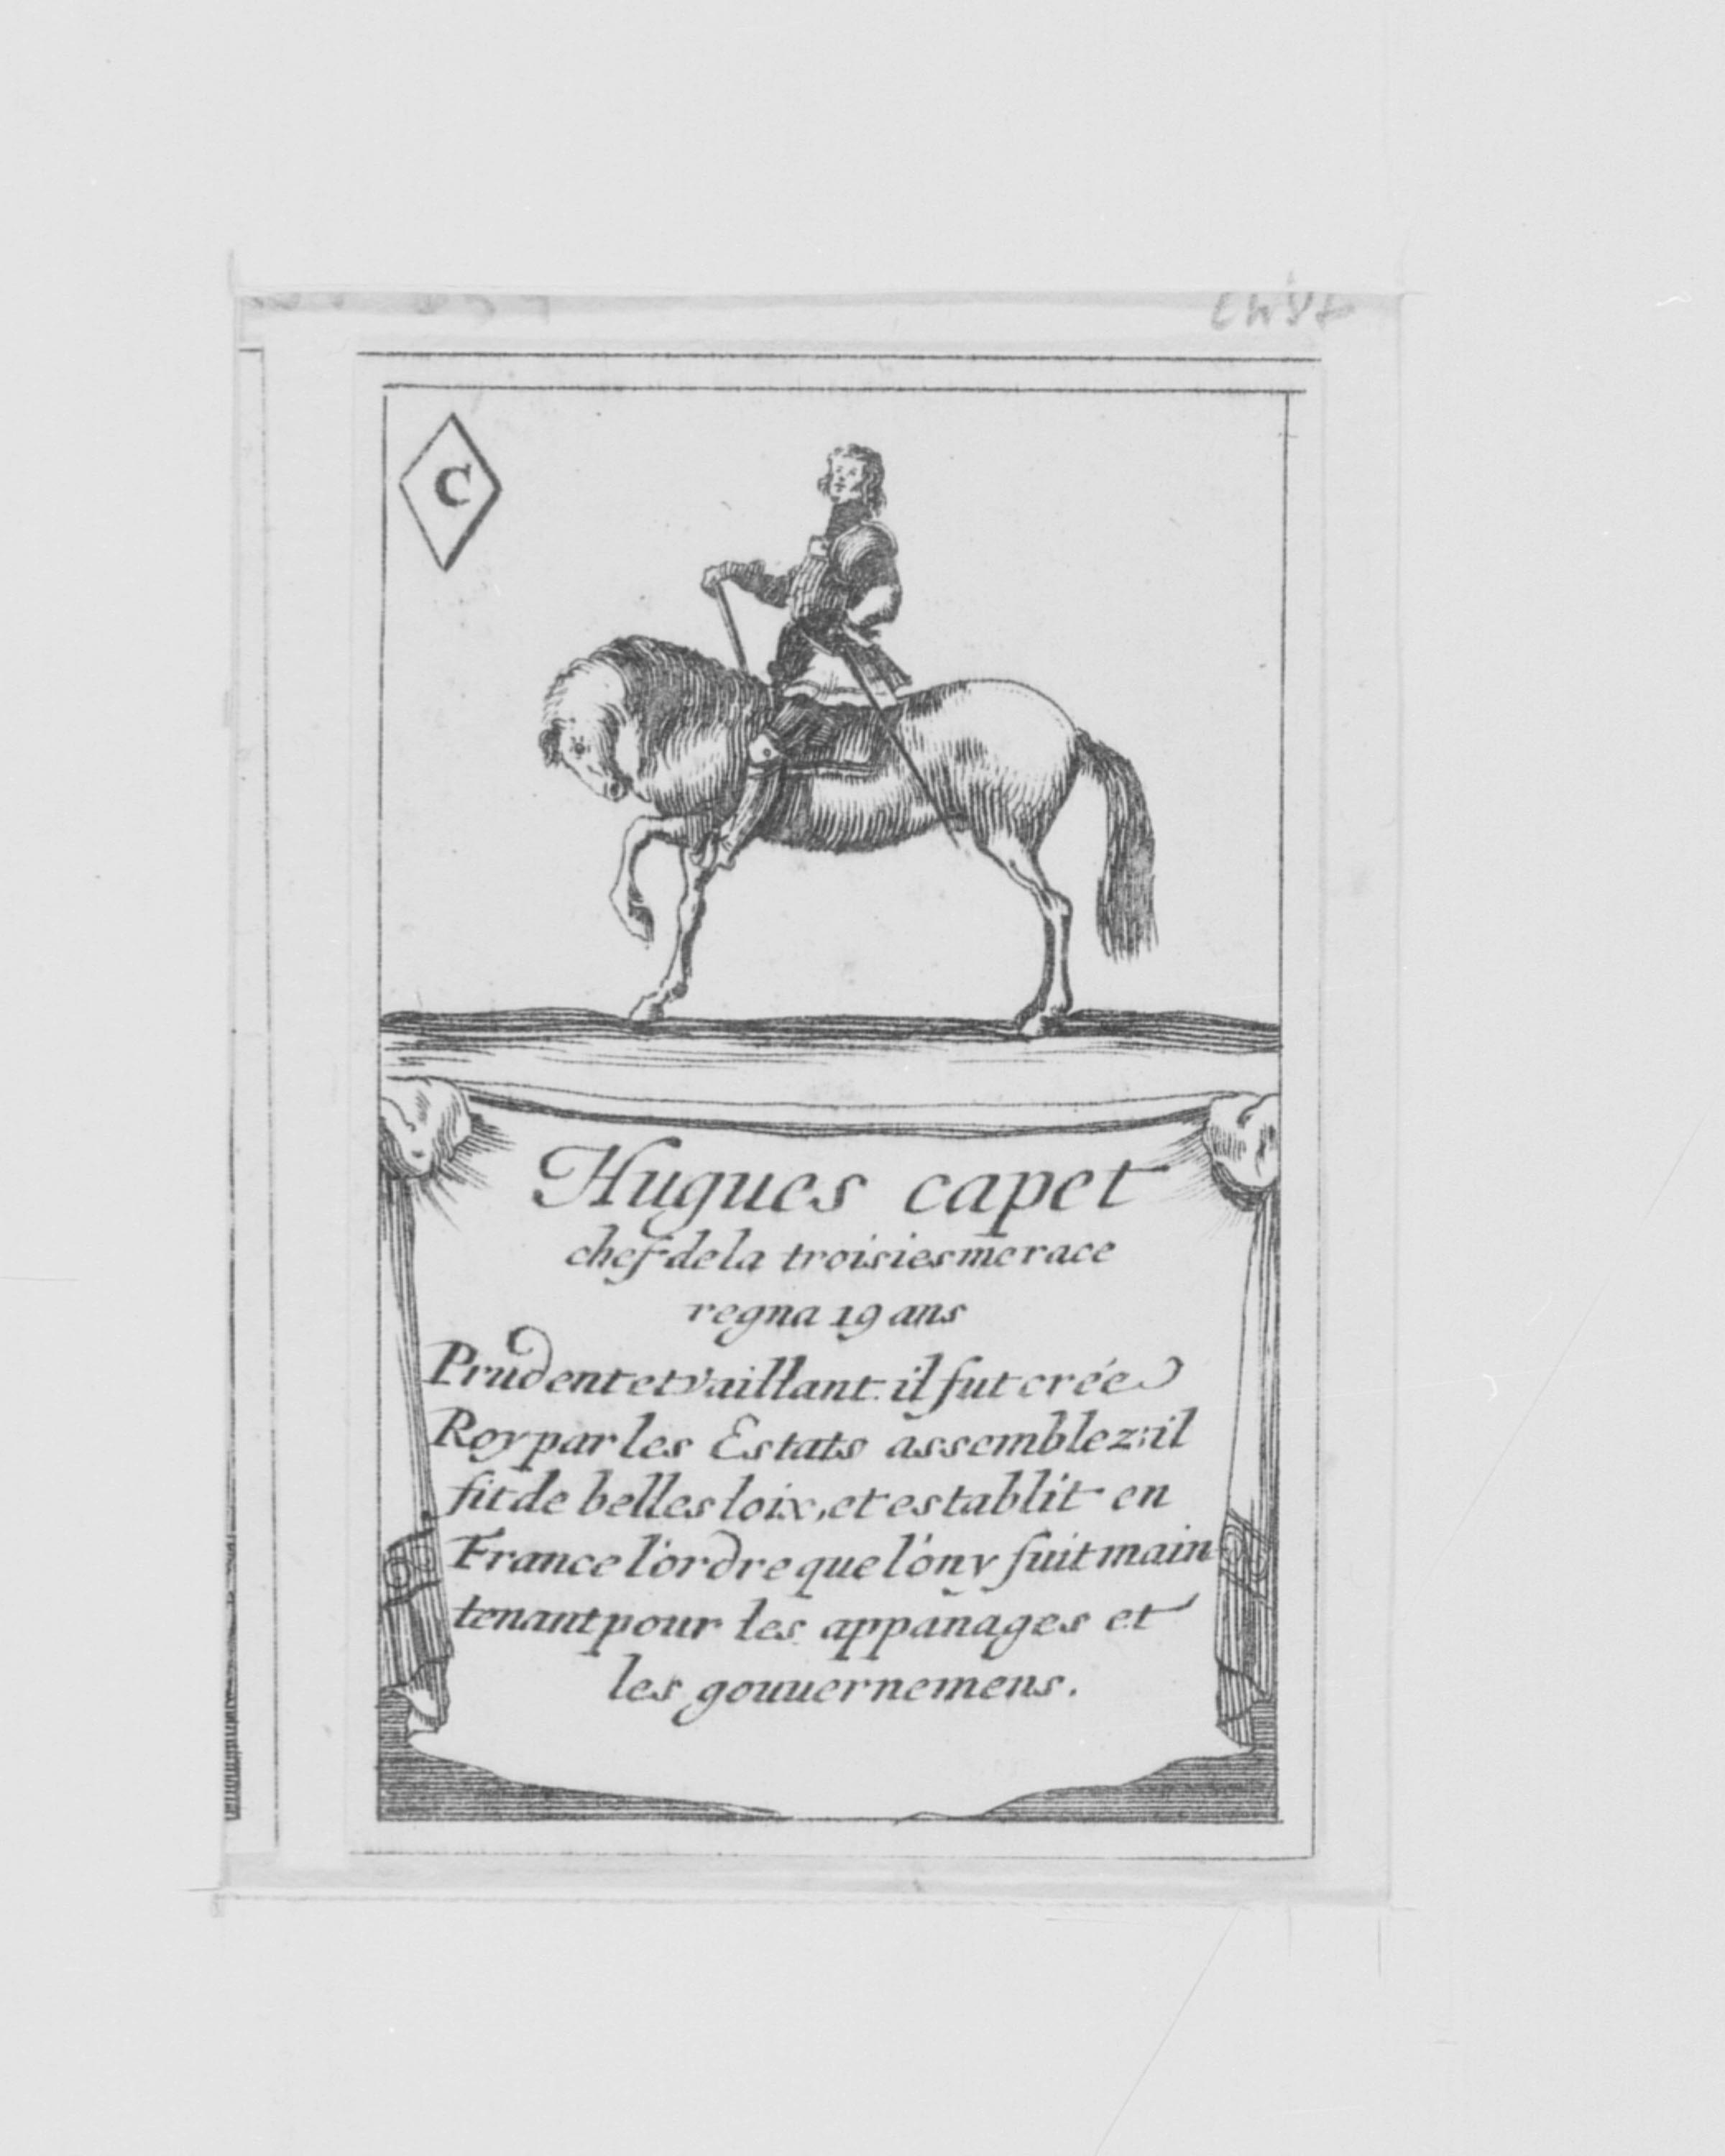 C
Hugues capet
chef de la troisiesme race
regna 19 ans
Prudent et vaillant. il fut crée
Roy par les Estats assemblez: il
fit de belles loix, et establit en
France l'ordre que l'on y suit main
tenant pour les appanages et
les gouuernemens.